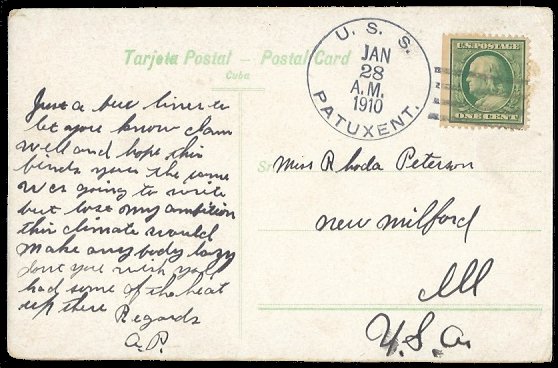 Tarjeta Postal – Postal Card
Cuba
U. S. S.
JAN
28
A.M.
1910
PATUXENT.
U.S. POSTAGE
ONE CENT
Just a few lines to
let you know I am
well and hope this
finds you the same
Was going to write
but lost my ambition
this climate would
make any body lazy
dont you wish you
had some of the heat
up there
Regards
A.P.
Miss Rhoda Peterson
New Milford
Ill
U.S.A.